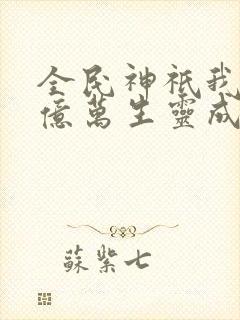 全民神祇我
億萬生靈成
蘇紫七